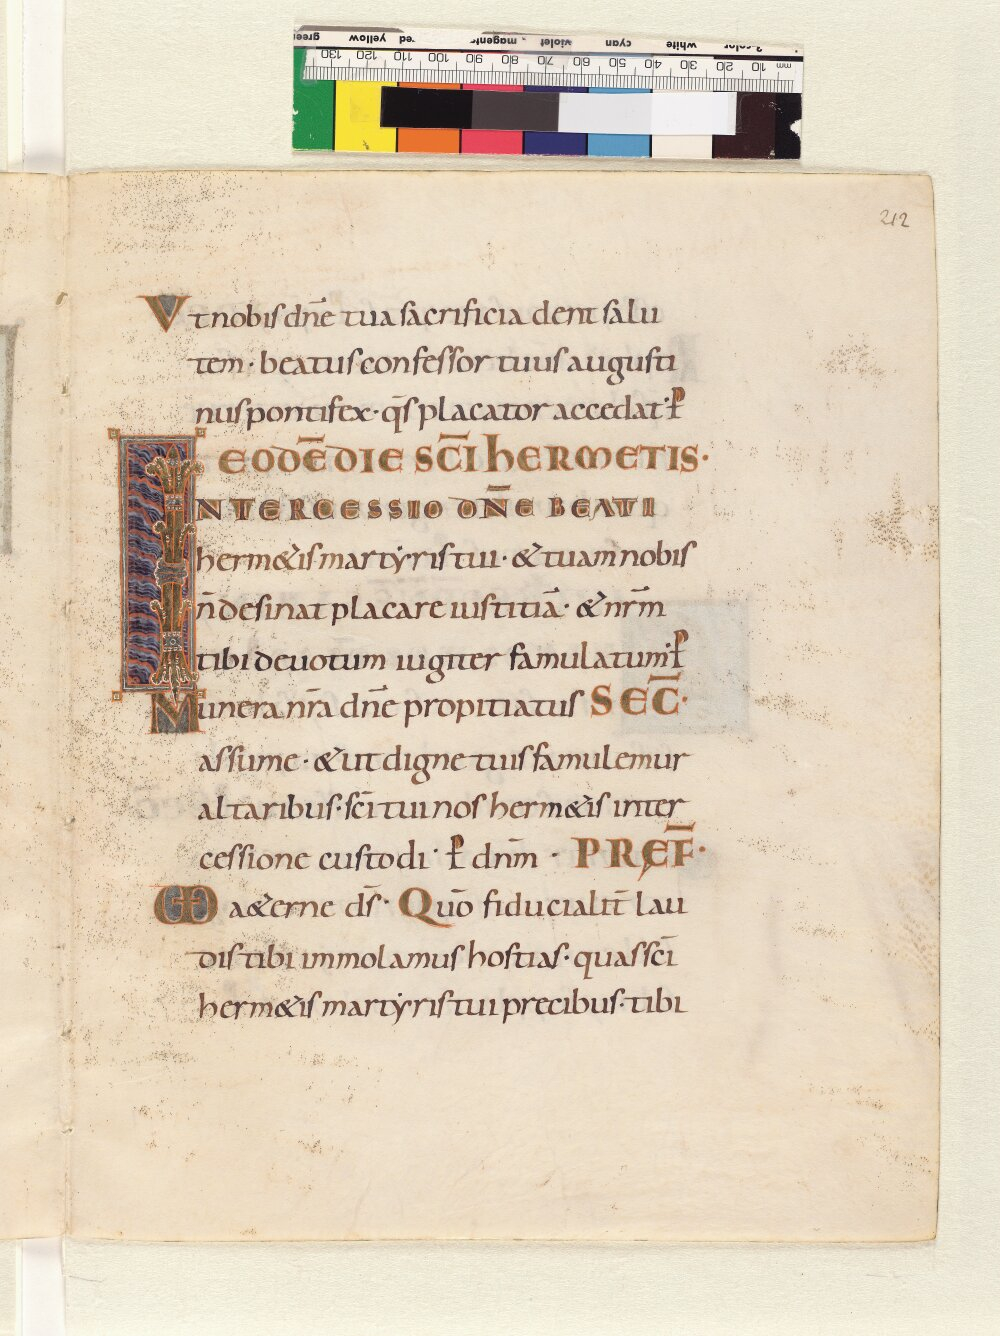 green yellow red magenta violet cyan white 3-color
130 120 110 100 90 80 70 60 50 40 30 20 10 mm
212
Vt nobis dn̄e tua sacrificia dent salu
tem · beatus confessor tuus augusti
nus pontifex · q̄s placator accedat · ꝑ
EODĒ DIE SC̄I hERMETIS ·
INTERCESSIO DN̄E BEATI
herm&is martẏris tui · & tuam nobis
n̄ desinat placare iustitiā · & nr̄m
tibi deuotum iugiter famulatum · ꝑ
Munera nr̄a dn̄e propitiatus SEC̄ ·
assume · & ut digne tuis famulemur
altaribus · sc̄i tui nos herm&is inter
cessione custodi · ꝑ dnm̄ · PREF̄ ·
M a&erne ds̄ · Quō fiducialit̄ lau
dis tibi immolamus hostias · quas sc̄i
herm&is martẏris tui precibus · tibi